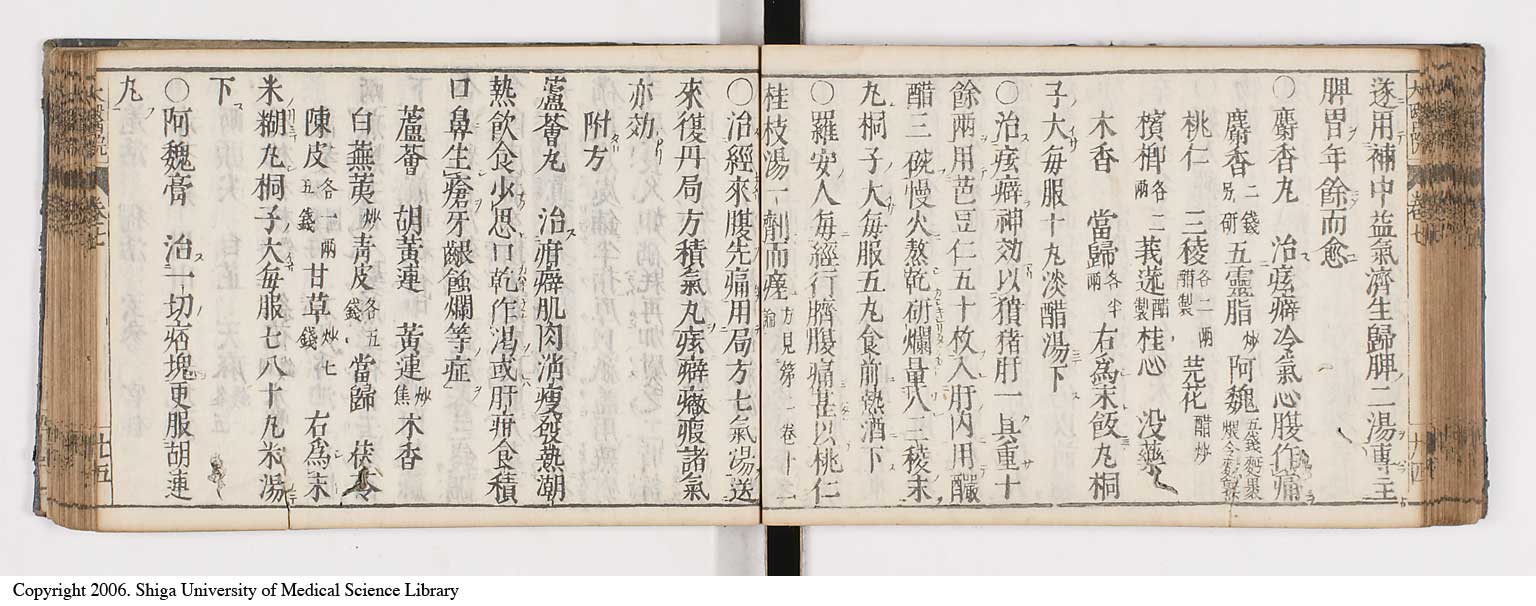 遂用補中益氣濟生歸脾二湯專主
脾胃年餘而愈
〇麝香丸 治痃癖冷氣心腹作痛
麝香二錢另研五靈脂炒阿魏五錢麪裹煨令麪
桃仁 三稜各二兩醋製芫花醋炒
檳榔各二兩莪蒁醋製桂心 没藥
木香 當歸各半兩右爲末飯丸桐
子大每服十丸淡醋湯下
〇治痃癖神効以豶猪肝一具重十
餘兩用芭豆仁五十枚入肝内用釅
醋三碗慢火熬乾研爛量入三稜末
丸桐子大每服五丸食前熱酒下
〇羅安人每經行臍腹痛甚以桃仁
桂枝湯一劑而痊方見第一卷十二論
〇治經來腹先痛用局方七氣湯送
來復丹局方積氣丸痃癖癥瘕諸氣
亦効
附方
蘆薈丸 治疳癖肌肉消瘦發熱潮
熱飲食少思口乾作渴或肝疳食積
口鼻生瘡牙齦蝕爛等症
蘆薈 胡黃連 黃連炒焦木香
白蕪荑炒靑皮各五錢當歸 茯苓
陳皮各一兩五錢甘草炒七錢 右爲末
米糊丸桐子大每服七八十丸米湯
下
〇阿魏膏 治一切痞塊更服胡連
丸
大醫院 卷七
Copyright 2006. Shiga University of Medical Science Library